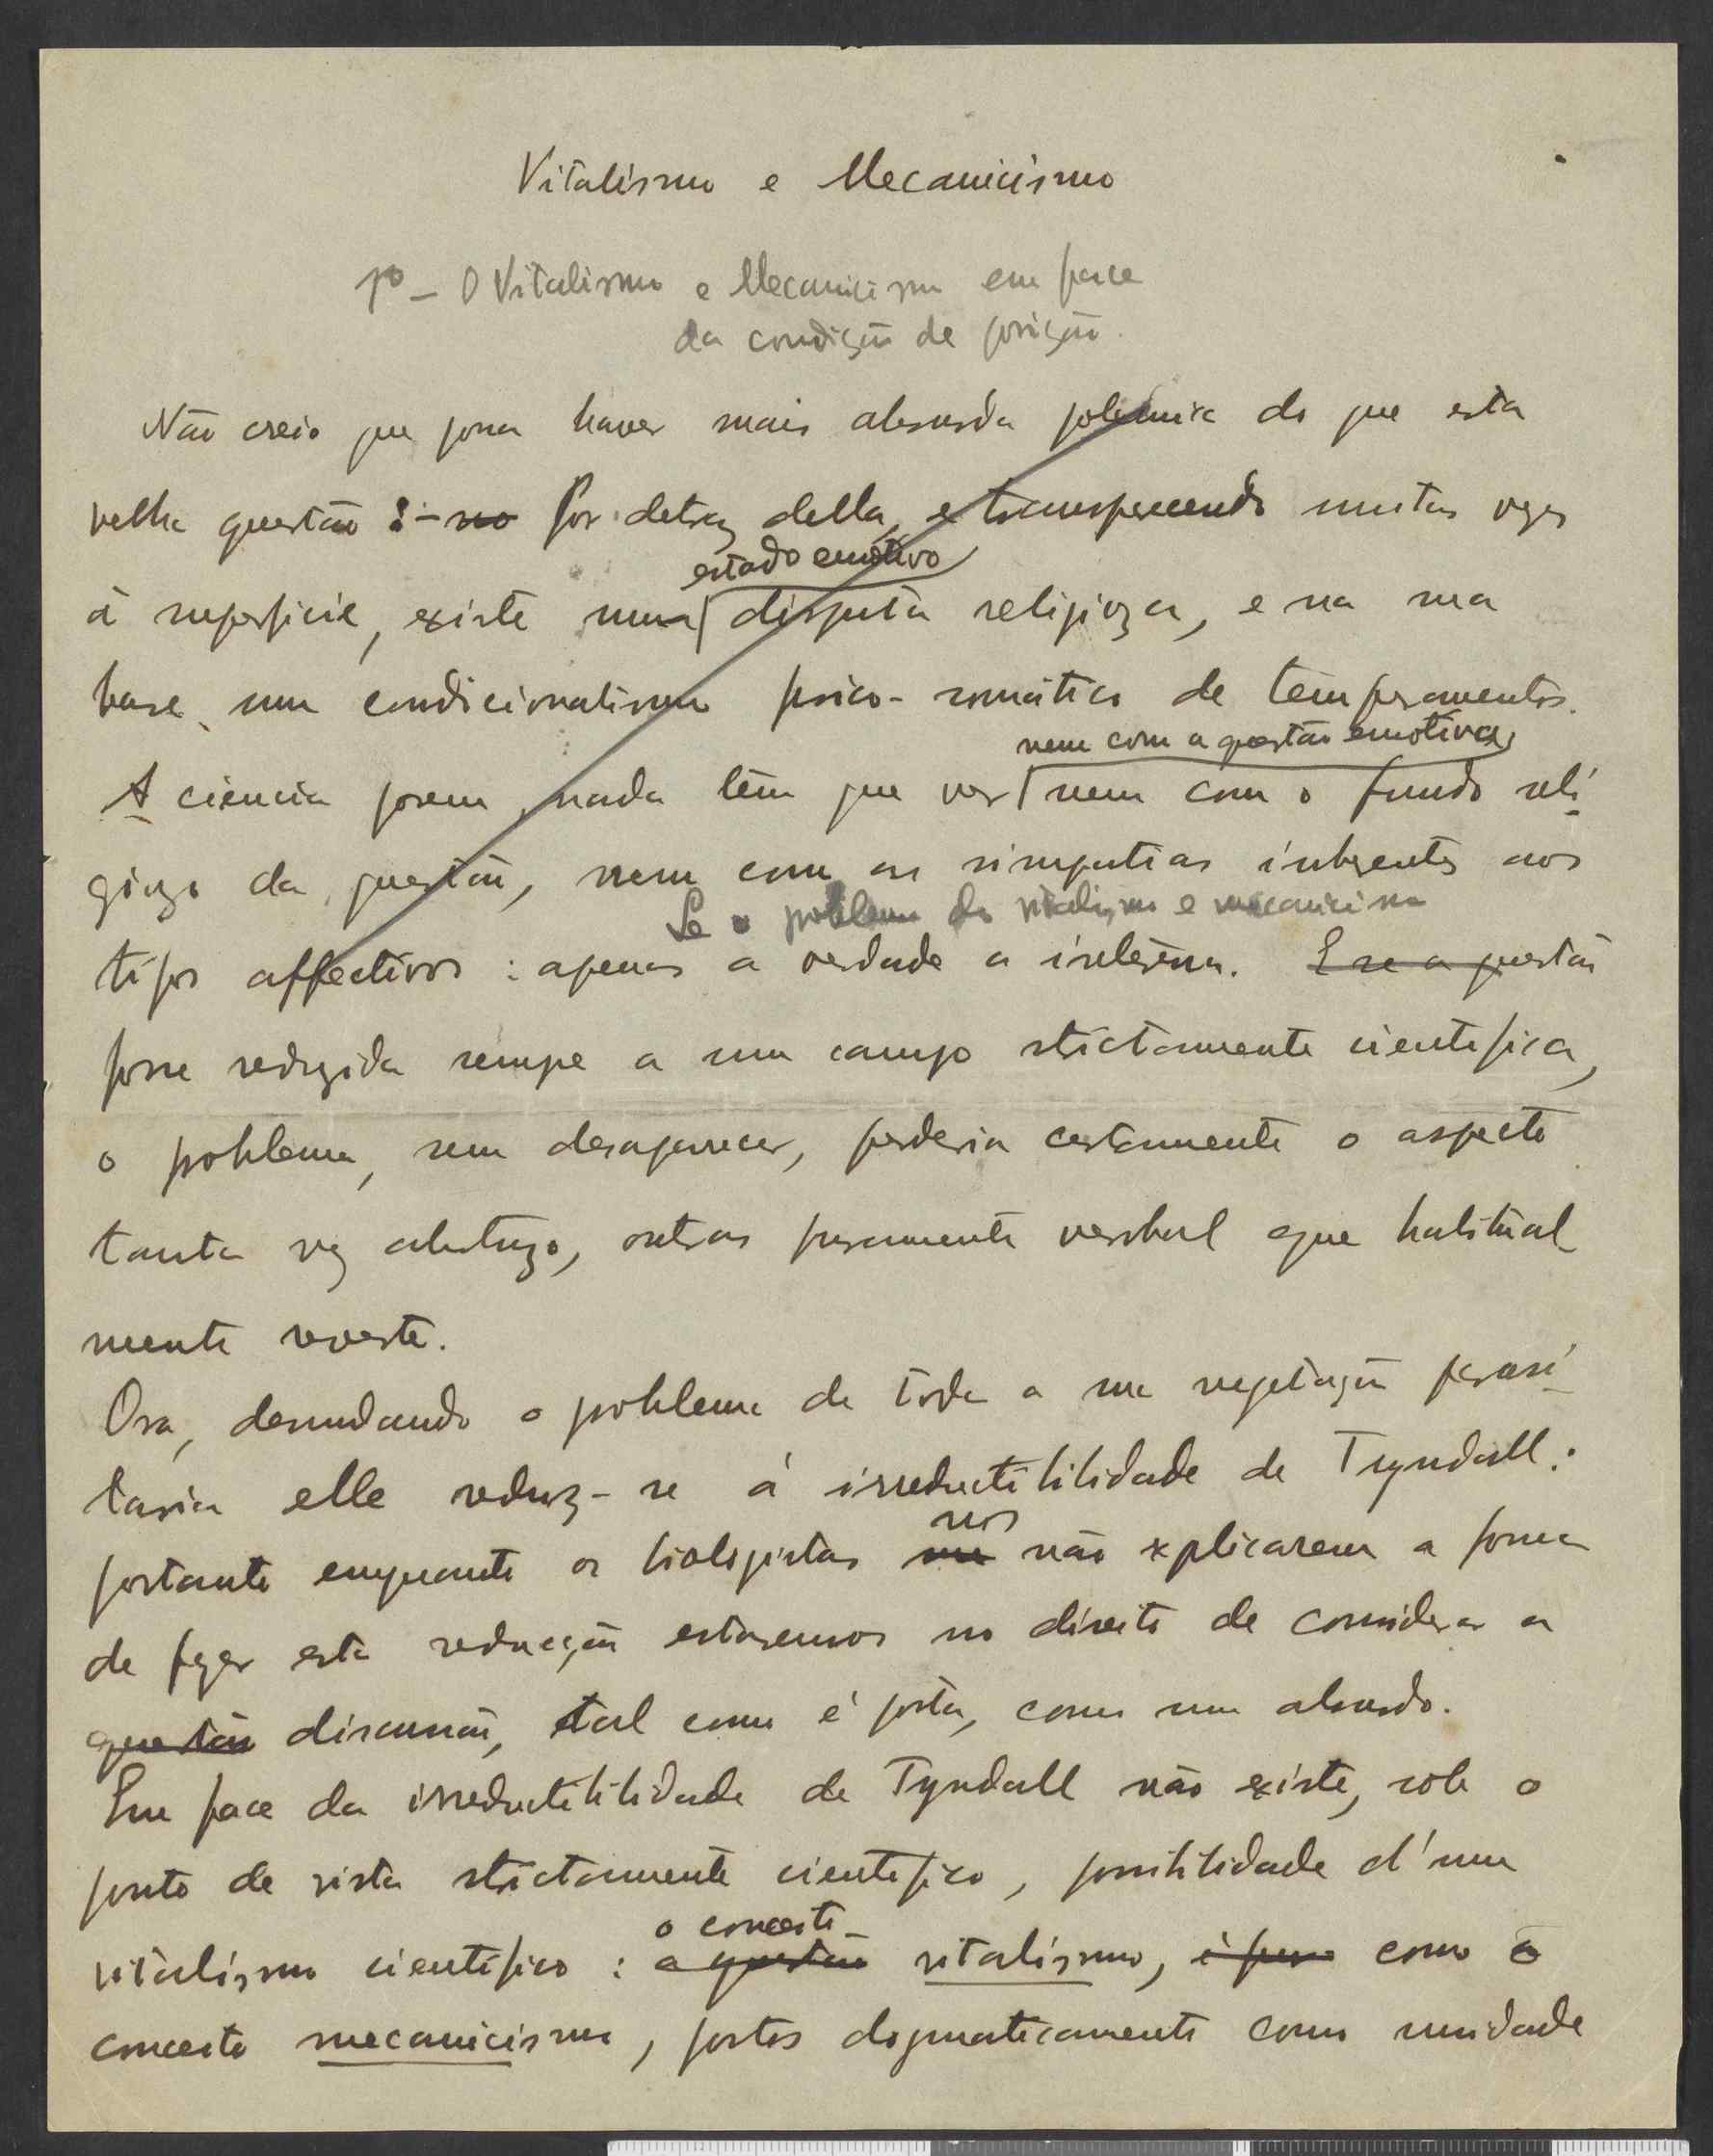 Vitalismo e Mecanicismo
1º - O Vitalismo e Mecanicismo em face
da condição de posição.
Não creio que possa haver mais absurda polemica do que esta
velha questão :- no Por detraz della, e transparecendo muitas vezes
estado emotivo
á superficie, existe uma disputa religioza, e na sua
base um condicionalismo psico-somático de temperamentos.
nem com a questão emotiva,
A ciencia porem, nada têm que ver nem com o fundo reli-
giozo da questão, nem com as simpatias inherentes aos
Se o problema do vitalismo e mecanicismo
tipos affectivos : apenas a verdade a interessa. E se a questão
fosse reduzida sempre a um campo strictamente cientifica,
o problema, sem desaparecer, perderia certamente o aspecto
tanta vez abstruzo, outras puramente verbal que habitual-
mente reveste.
Ora, desnudando o problema de toda a sua vegetação parasi-
taria elle reduz-se á irreductibilidade de Tyndall:
nos
portanto emquanto os biologistas me não explicarem a forma
de fazer esta reducção estaremos no direito de considerar a
questão discussão, tal como é posta, como um absurdo.
Em face da irreductibilidade de Tyndall não existe, sob o
ponto de vista strictamente cientifico, possibilidade d'um
o conceito
vitalismo cientifico : a questão vitalismo, é puro como o
conceito mecanicismo, postos dogmaticamente como unidade